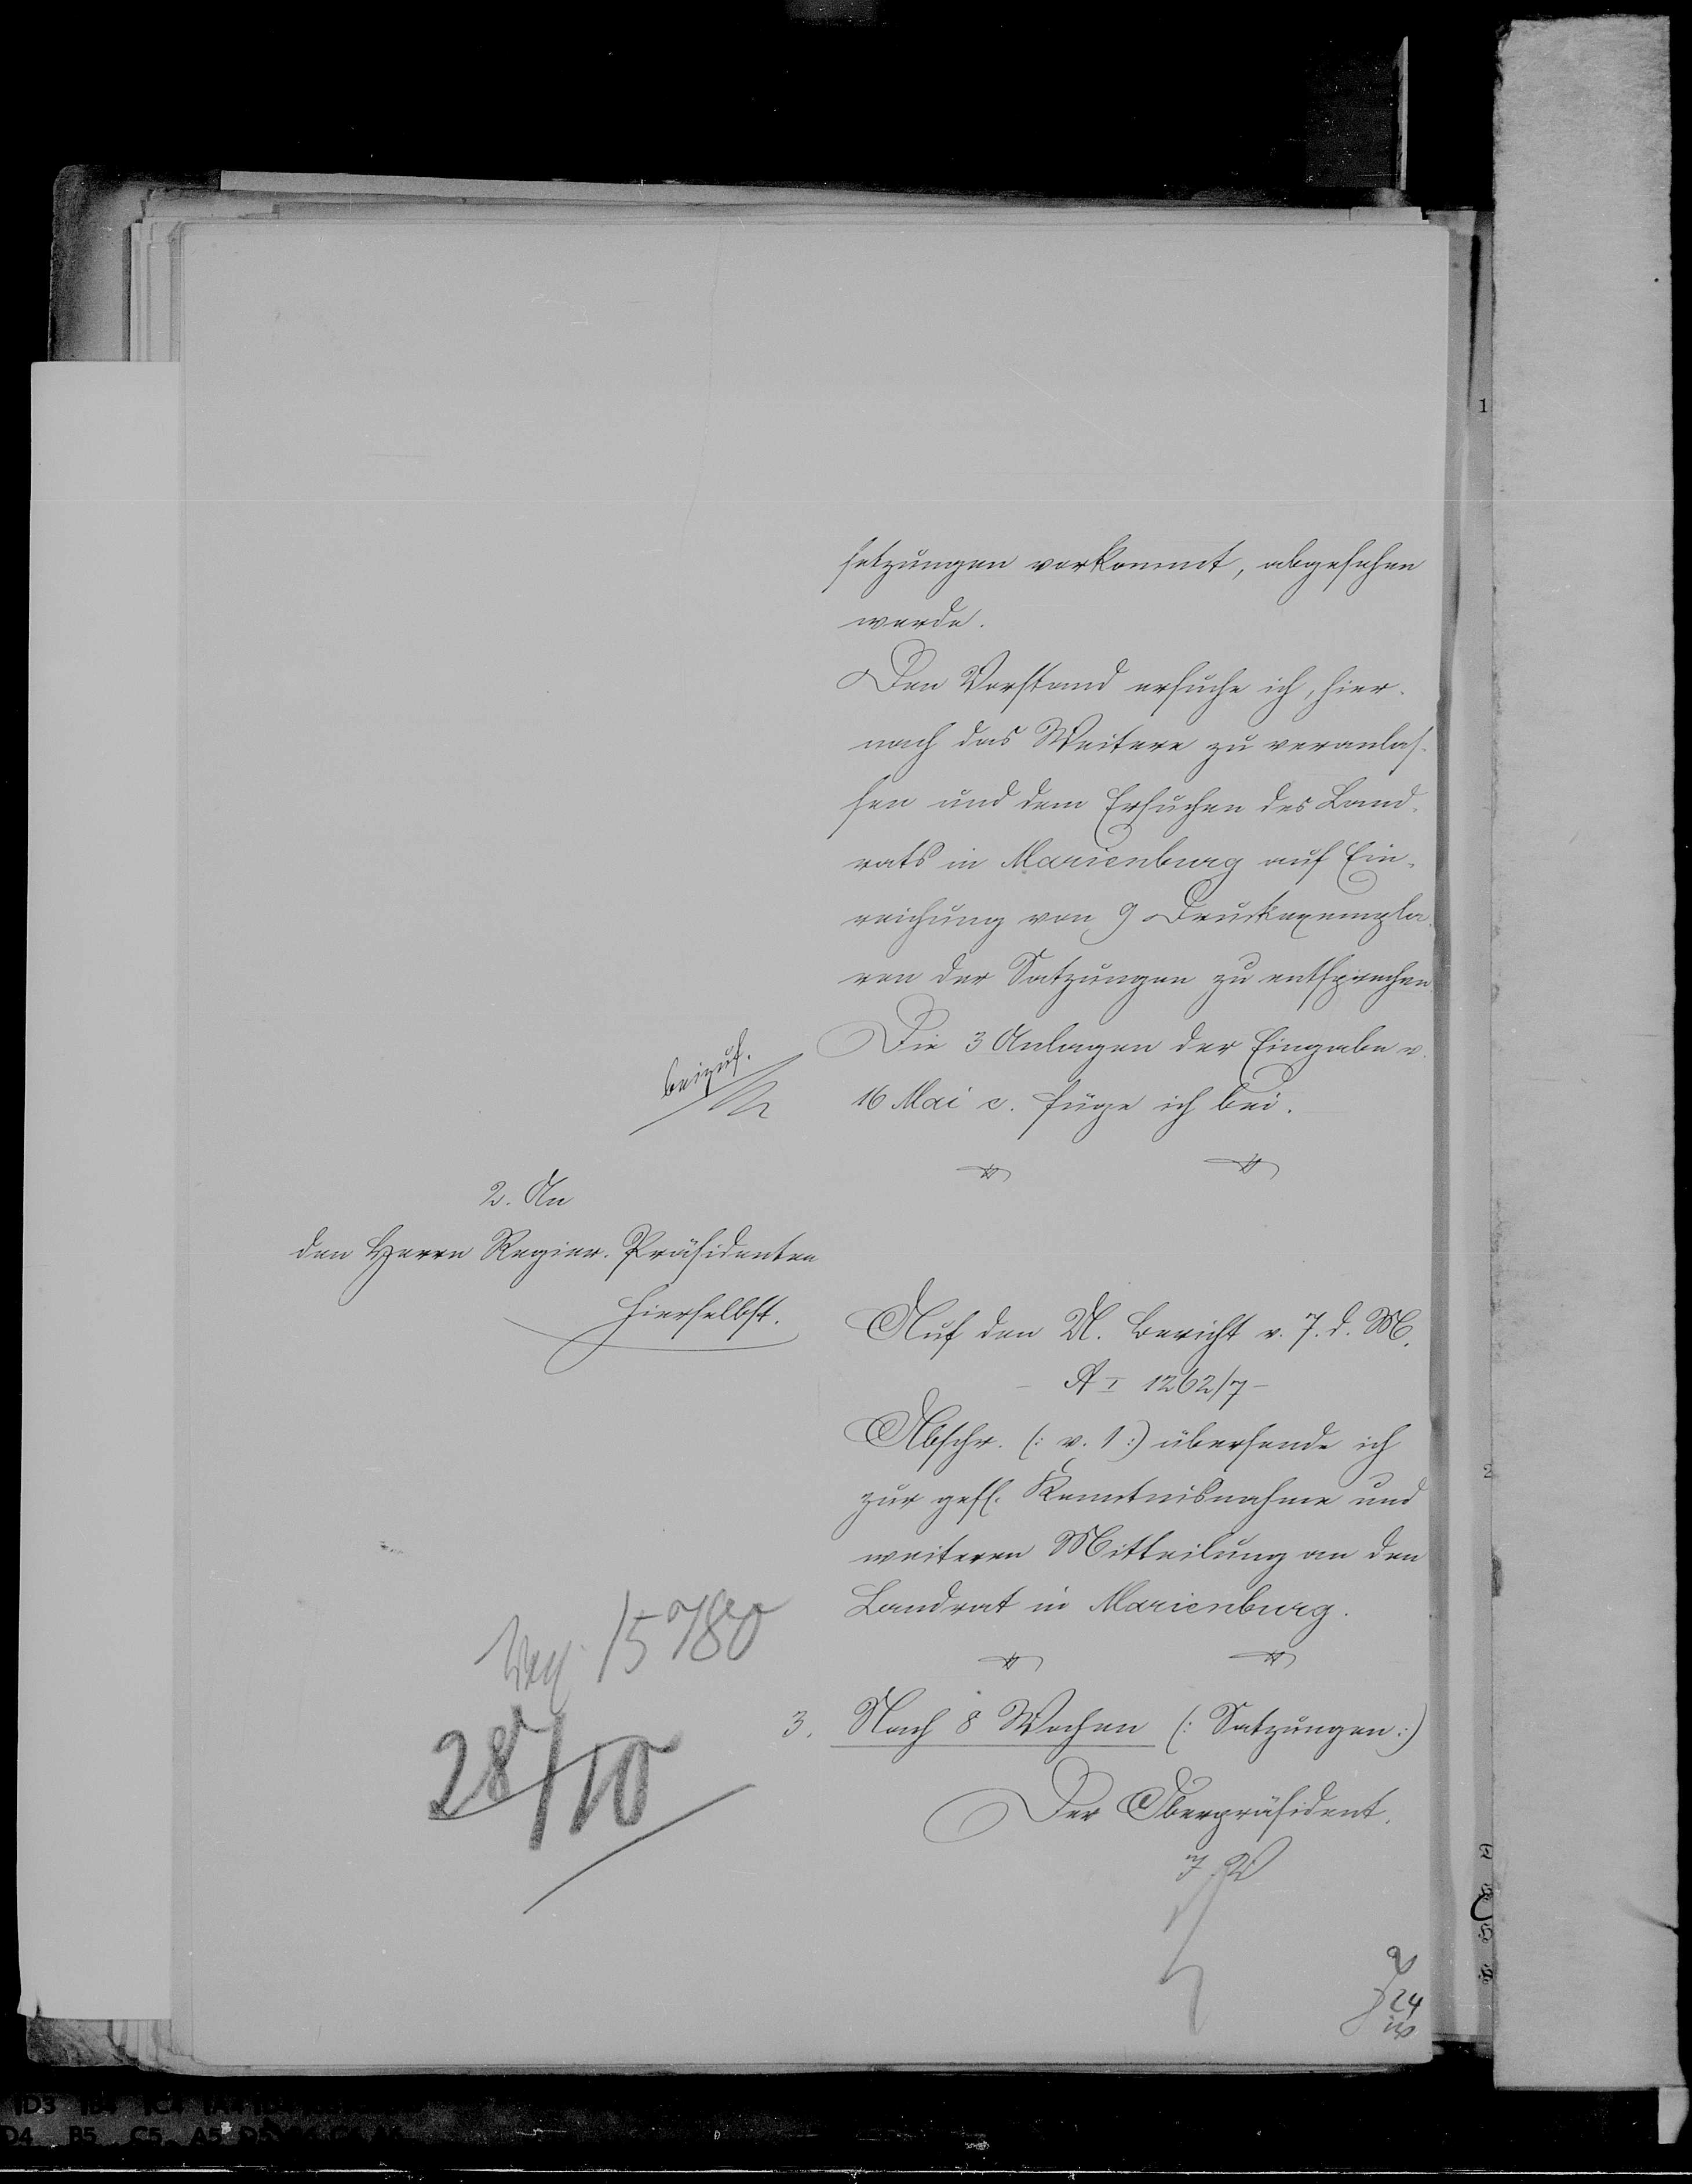 setzungen vorkommt, abgesehen
werde.
Den Vorstand ersuche ich, hier-
nach das Weitere zu veranlas-
sen und dem Ersuchen des Land-
rats in Marienburg auf Ein-
reichung von 9 Druckexempla-
ren der Satzungen zu entsprechen.
Die 3 Anlagen der Eingabe v.
16 Mai c. füge ich bei.
beizuf.
2. An
den Herrn Regier. Präsidenten
hierselbst.
Auf den U. Bericht v. 7. d. M.
- A I 1262/7 -
Abschr. (: v. 1 :) übersende ich
zur gefl. Kenntnisnahme und
weiteren Mitteilung an den
Landrat in Marienburg.
15780
28/10
3. Nach 8 Wochen (: Satzungen :)
Der Oberpräsident.
24